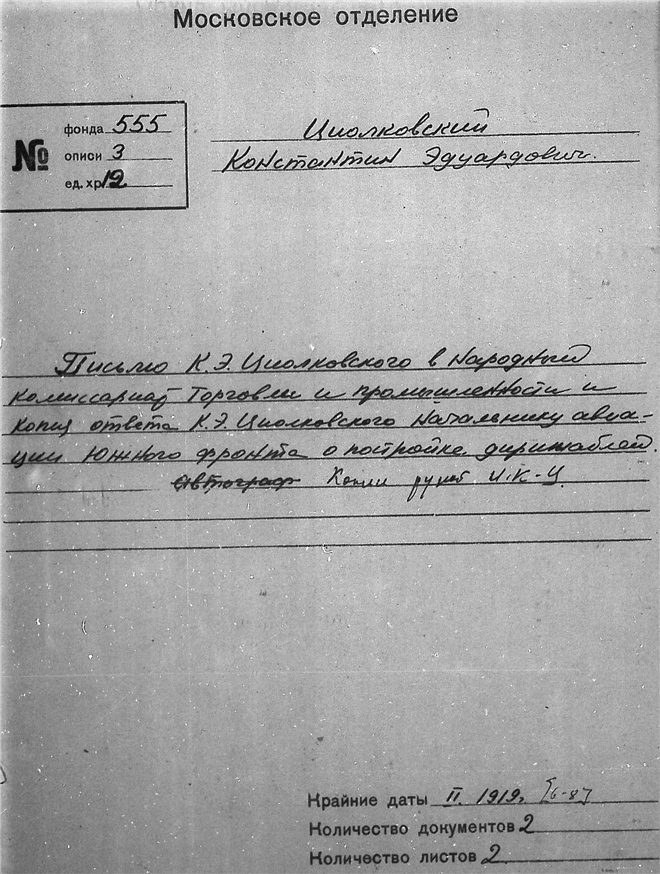 Московское отделение
№
фонда 555
описи 3
ед. хр. 12
Циолковский
Константин Эдуардович.
Письмо К.Э. Циолковского в Народный
комиссариат Торговли и промышленности и
копия ответа К.Э. Циолковского Начальнику авиа-
ции Южного фронта о постройке дирижаблей.
Автограф Копии рукой
Крайние даты II. 1919г. [6-8]
Количество документов 2
Количество листов 2